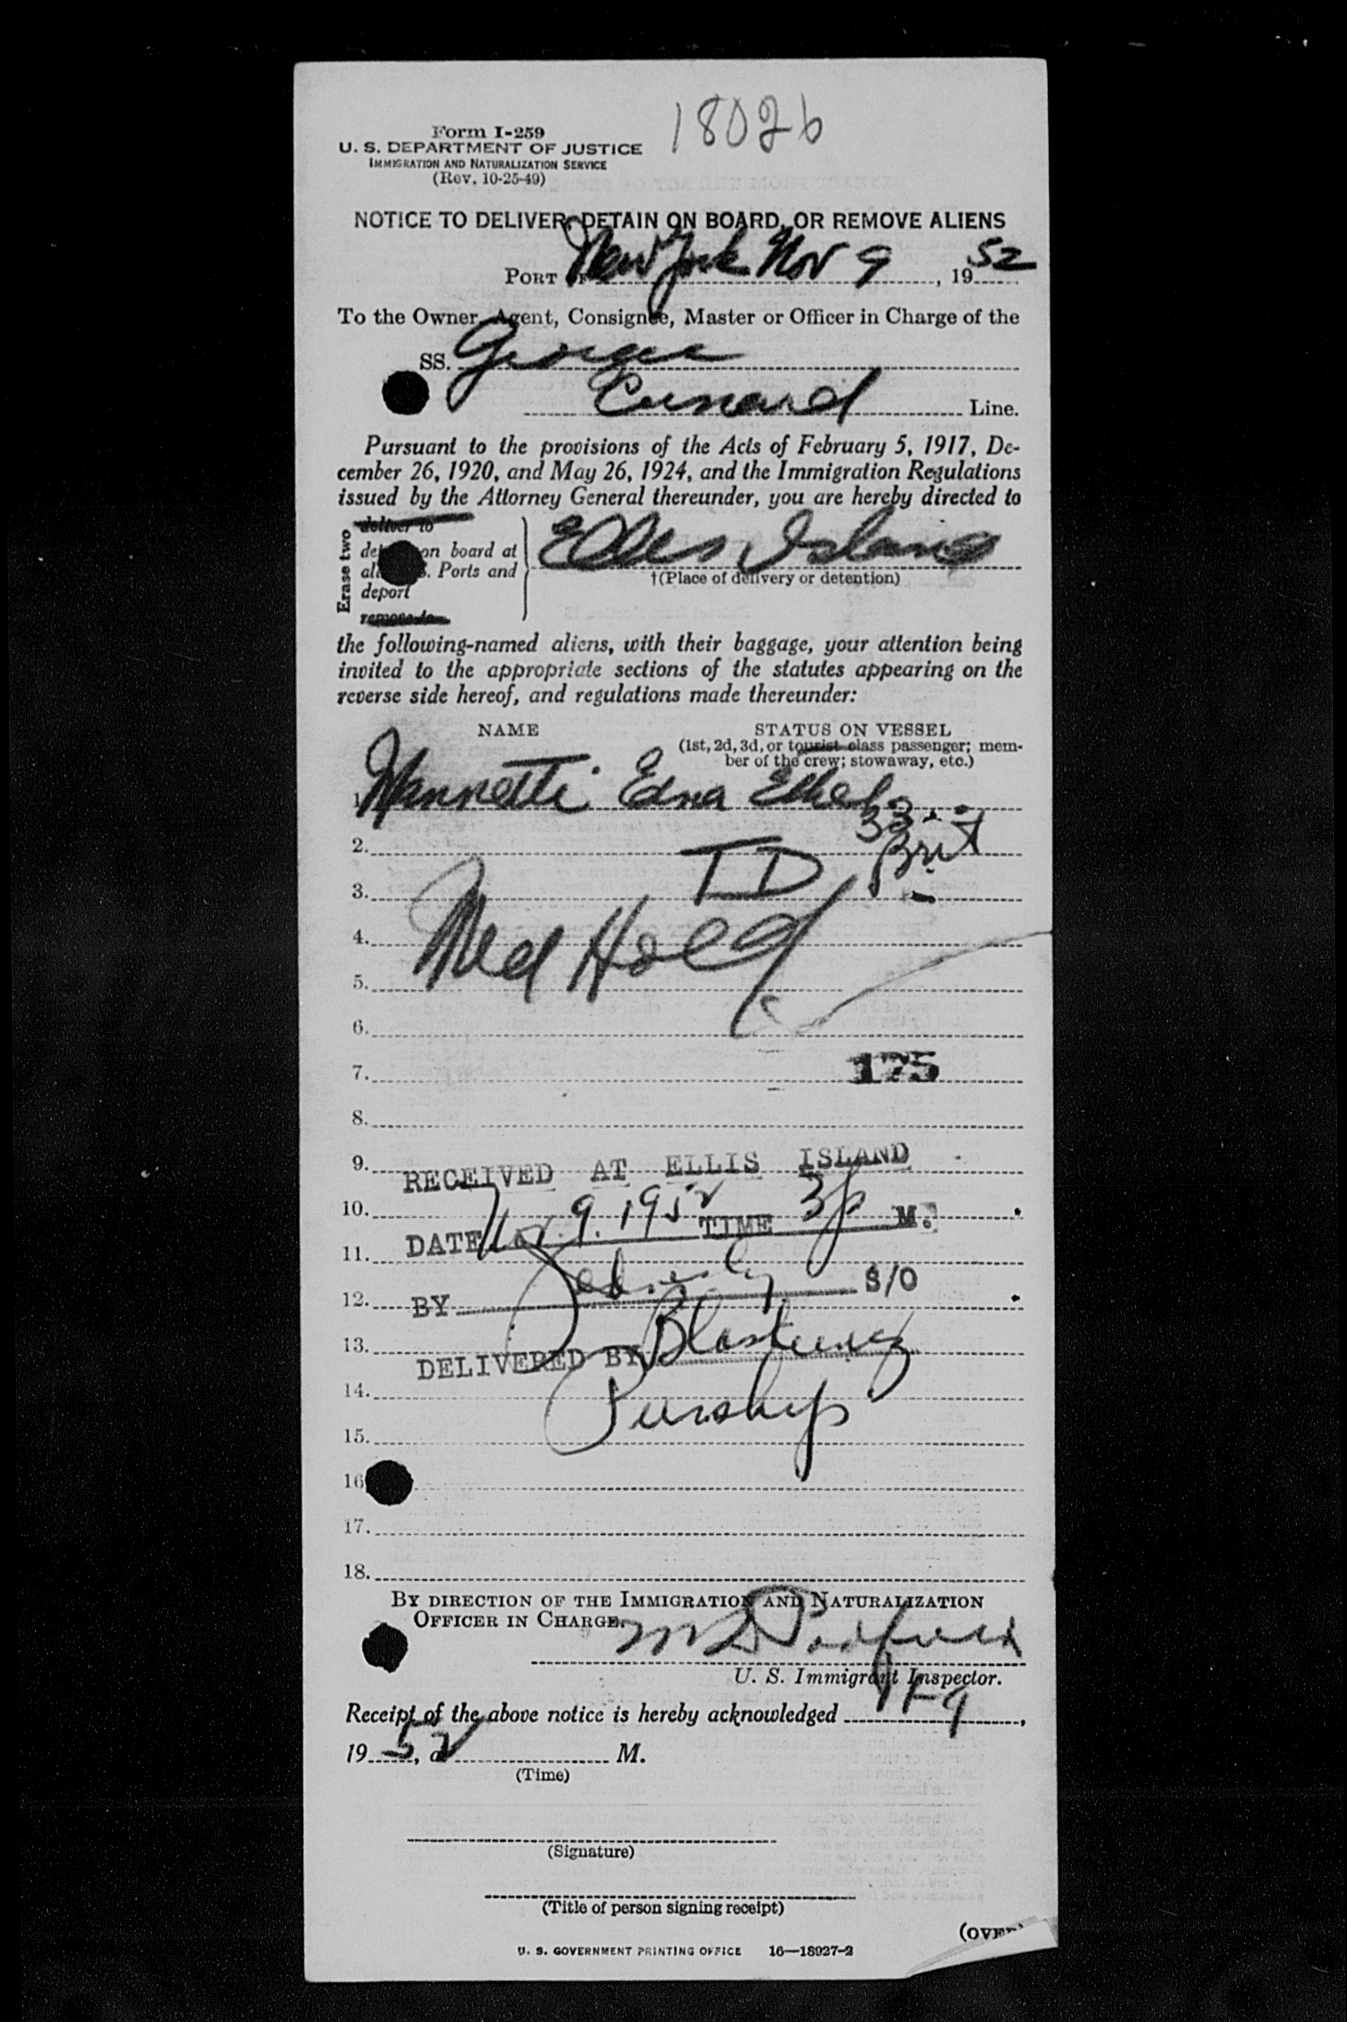 18026
Form I-259
U. S. DEPARTMENT OF JUSTICE
IMMIGRATION AND NATURALIZATION SERVICE
(Rev. 10-25-49)
NOTICE TO DELIVER, DETAIN ON BOARD, OR REMOVE ALIENS
PORT OF New York Nov 9, 1952
To the Owner, Agent, Consignee, Master or Officer in Charge of the
SS. Georgic
Cunard Line.
Pursuant to the provisions of the Acts of February 5, 1917, De-
cember 26, 1920, and May 26, 1924, and the Immigration Regulations
issued by the Attorney General thereunder, you are hereby directed to
Erase two
deliver to
on board at
Ports and
deport
remove to
Ellis Island
†(Place of delivery or detention)
the following-named aliens, with their baggage, your attention being
invited to the appropriate sections of the statutes appearing on the
reverse side hereof, and regulations made thereunder:
NAME STATUS ON VESSEL
(1st, 2d, 3d, or tourist class passenger; mem-
ber of the crew; stowaway, etc.)
1. Edna Ethel 33
2. Brit
3. TD
4. Med Hold
5.
6.
7. 175
8.
9. RECEIVED AT ELLIS ISLAND
10.
DATE Nov. 9. 1952 TIME 3 p M.
11.
12. BY S/O
13.
DELIVERED BY
14.
15.
16
17.
18.
BY DIRECTION OF THE IMMIGRATION AND NATURALIZATION
OFFICER IN CHARGE.
U. S. Immigrant Inspector.
Receipt of the above notice is hereby acknowledged 11-9,
1952, a M.
(Time)
(Signature)
(Title of person signing receipt)
(OVER)
U. S. GOVERNMENT PRINTING OFFICE 16—18927-2